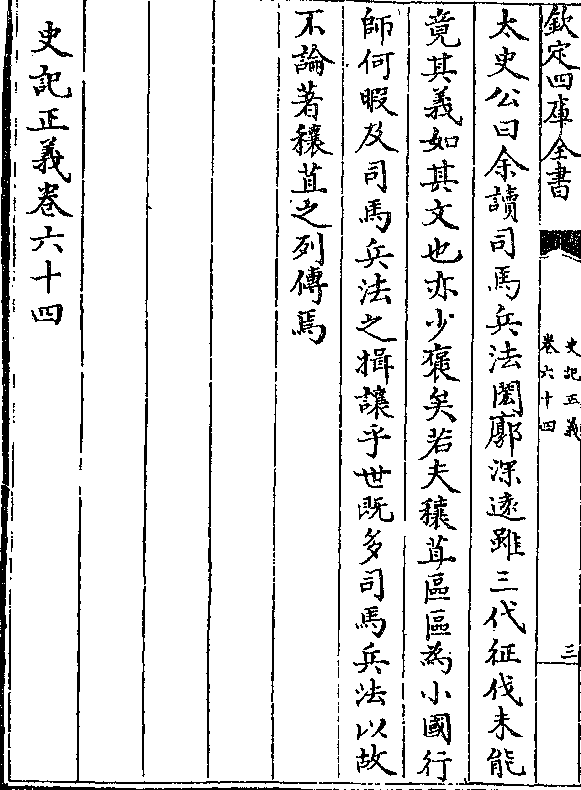 欽定四庫全書
史記正義
卷六十四
三
太史公曰余讀司馬兵法閎廓深遠雖三代征伐未能
竟其義如其文也亦少褒矣若夫穰苴區區為小國行
師何暇及司馬兵法之揖讓乎世既多司馬兵法以故
不論著穰苴之列傳焉
史記正義卷六十四